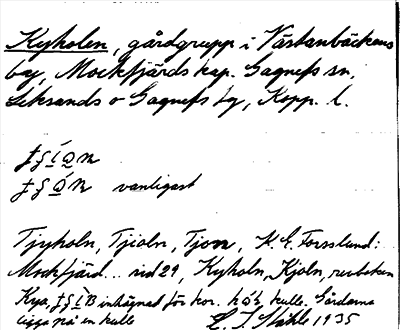 Kyholen, gårdgrupp i Västanbäckens
by, Mockfjärds kap. Gagnefs sn,
Leksands o Gagnefs tg, Kopp. l.
vanligast
Tjyholn, Tjioln, Tjon, K. G. Forsslund:
Mockfjärd... sid 29, Kyholn, Kjoln,
Kya, inhägnad för kor. kulle. Gårdarna
ligga på en kulle 1935